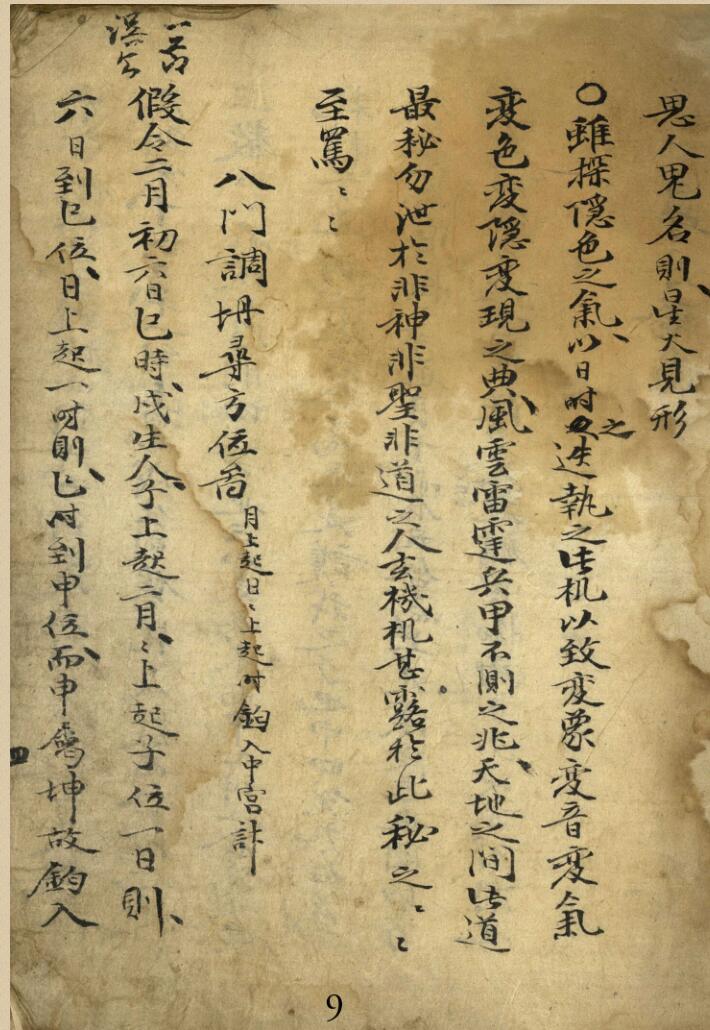 思人鬼名則星火見形
〇雖探隱色之氣以日时之迭執之此机以致変象変音変氣
変色変隱変現之典風雲雷霆兵甲不測之兆天地之間此道
最秘勿泄於非神非聖非道之人玄機机甚露於此秘之〻〻
至篤〻〻
八門調坍尋方位者
月上起日〻上起时鉤入中宮計
假令二月初六日巳時戌生人子上起二月〻上起子位一日則
六日到巳位日上起一时則巳时到申位而申寄坤故鉤入
9